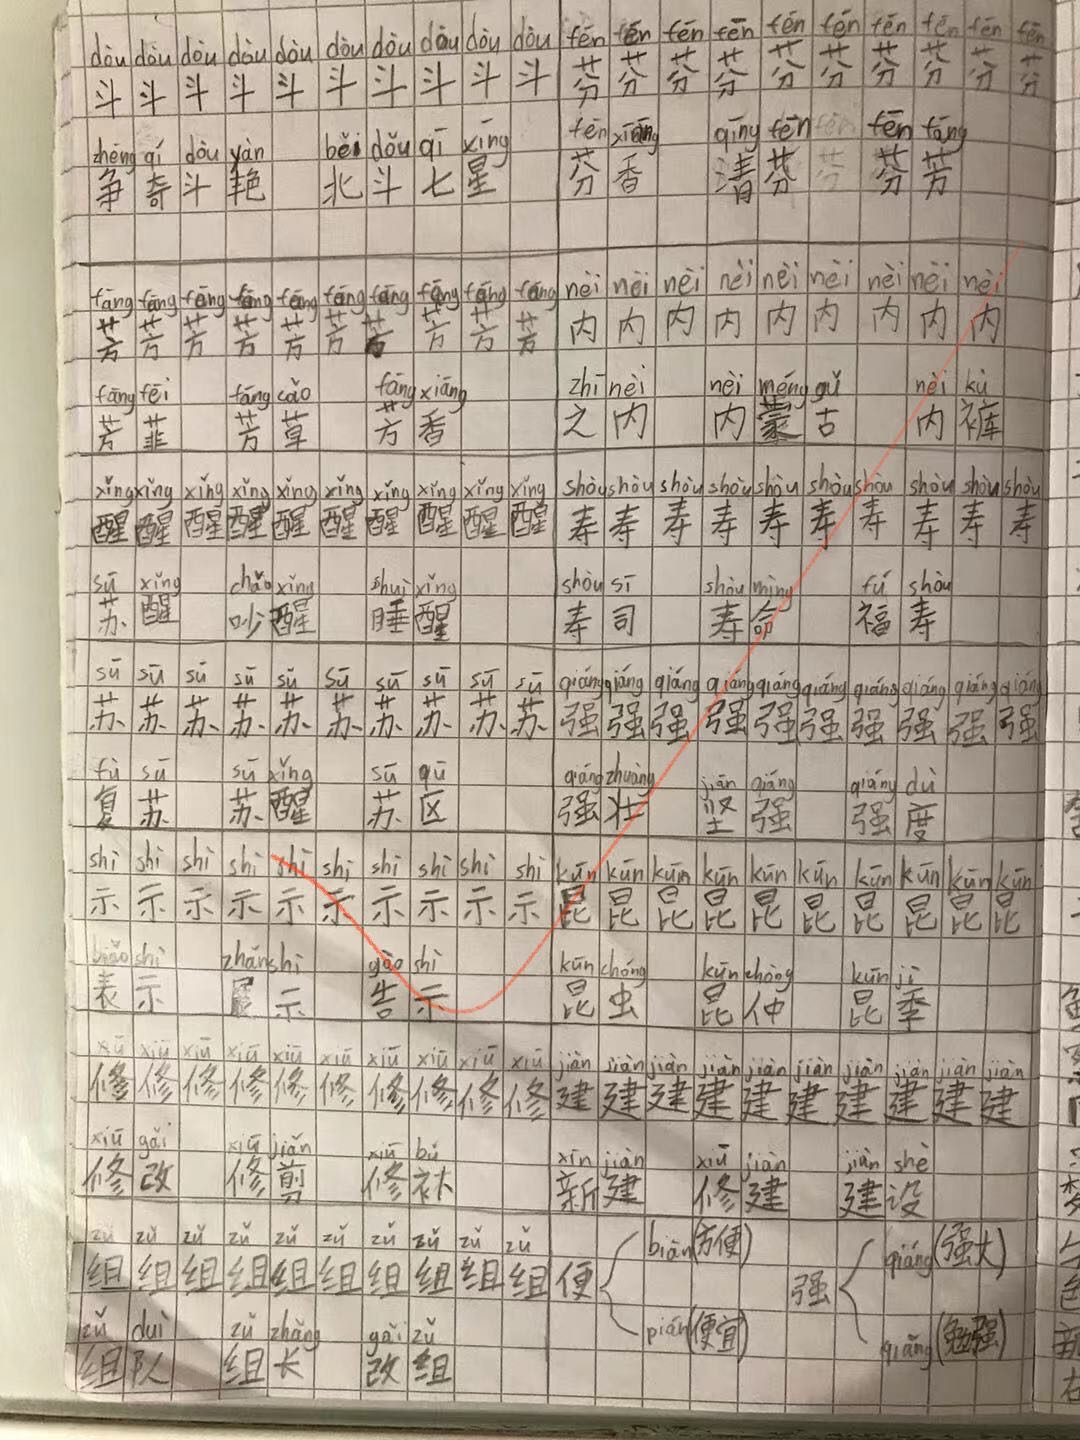 dòu dòu dòu dòu dòu dòu dòu dòu dòu dòu fēn fēn fēn fēn fēn fēn fēn fēn fēn fēn
斗 斗 斗 斗 斗 斗 斗 斗 斗 斗 芬 芬 芬 芬 芬 芬 芬 芬 芬 芬
zhēng qí dòu yàn běi dǒu qī xīng fēn xiāng qīng fēn fēn fāng
争 奇 斗 艳 北 斗 七 星 芬 香 清 芬 芬 芳
fāng fāng fāng fāng fāng fāng fāng fāng fāng fāng nèi nèi nèi nèi nèi nèi nèi nèi nèi
芳 芳 芳 芳 芳 芳 芳 芳 芳 芳 内 内 内 内 内 内 内 内 内
fāng fēi fāng cǎo fāng xiāng zhī nèi nèi méng gǔ nèi kù
芳 菲 芳 草 芳 香 之 内 内 蒙 古 内 裤
xǐng xǐng xǐng xǐng xǐng xǐng xǐng xǐng xǐng xǐng shòu shòu shòu shòu shòu shòu shòu shòu shòu shòu
醒 醒 醒 醒 醒 醒 醒 醒 醒 醒 寿 寿 寿 寿 寿 寿 寿 寿 寿 寿
sū xǐng chǎo xǐng shuì xǐng shòu sī shòu mìng fú shòu
苏 醒 吵 醒 睡 醒 寿 司 寿 命 福 寿
sū sū sū sū sū sū sū sū sū sū qiáng qiáng qiáng qiáng qiáng qiáng qiáng qiáng qiáng qiáng
苏 苏 苏 苏 苏 苏 苏 苏 苏 苏 强 强 强 强 强 强 强 强 强 强
fù sū sū xǐng sū qū qiáng zhuàng jiān qiáng qiáng dù
复 苏 苏 醒 苏 区 强 壮 坚 强 强 度
shì shì shì shì shì shì shì shì shì shì kūn kūn kūn kūn kūn kūn kūn kūn kūn kūn
示 示 示 示 示 示 示 示 示 示 昆 昆 昆 昆 昆 昆 昆 昆 昆 昆
biǎo shì zhǎn shì gào shì kūn chóng kūn zhòng kūn jì
表 示 展 示 告 示 昆 虫 昆 仲 昆 季
xiū xiū xiū xiū xiū xiū xiū xiū xiū xiū jiàn jiàn jiàn jiàn jiàn jiàn jiàn jiàn jiàn jiàn
修 修 修 修 修 修 修 修 修 修 建 建 建 建 建 建 建 建 建 建
xiū gǎi xiū jiǎn xiū bǔ xīn jiàn xiū jiàn jiàn shè
修 改 修 剪 修 补 新 建 修 建 建 设
zǔ zǔ zǔ zǔ zǔ zǔ zǔ zǔ zǔ zǔ biàn(方便) qiáng(强大)
组 组 组 组 组 组 组 组 组 组 便 强
zǔ duì zǔ zhǎng gǎi zǔ pián(便宜) qiǎng(勉强)
组 队 组 长 改 组